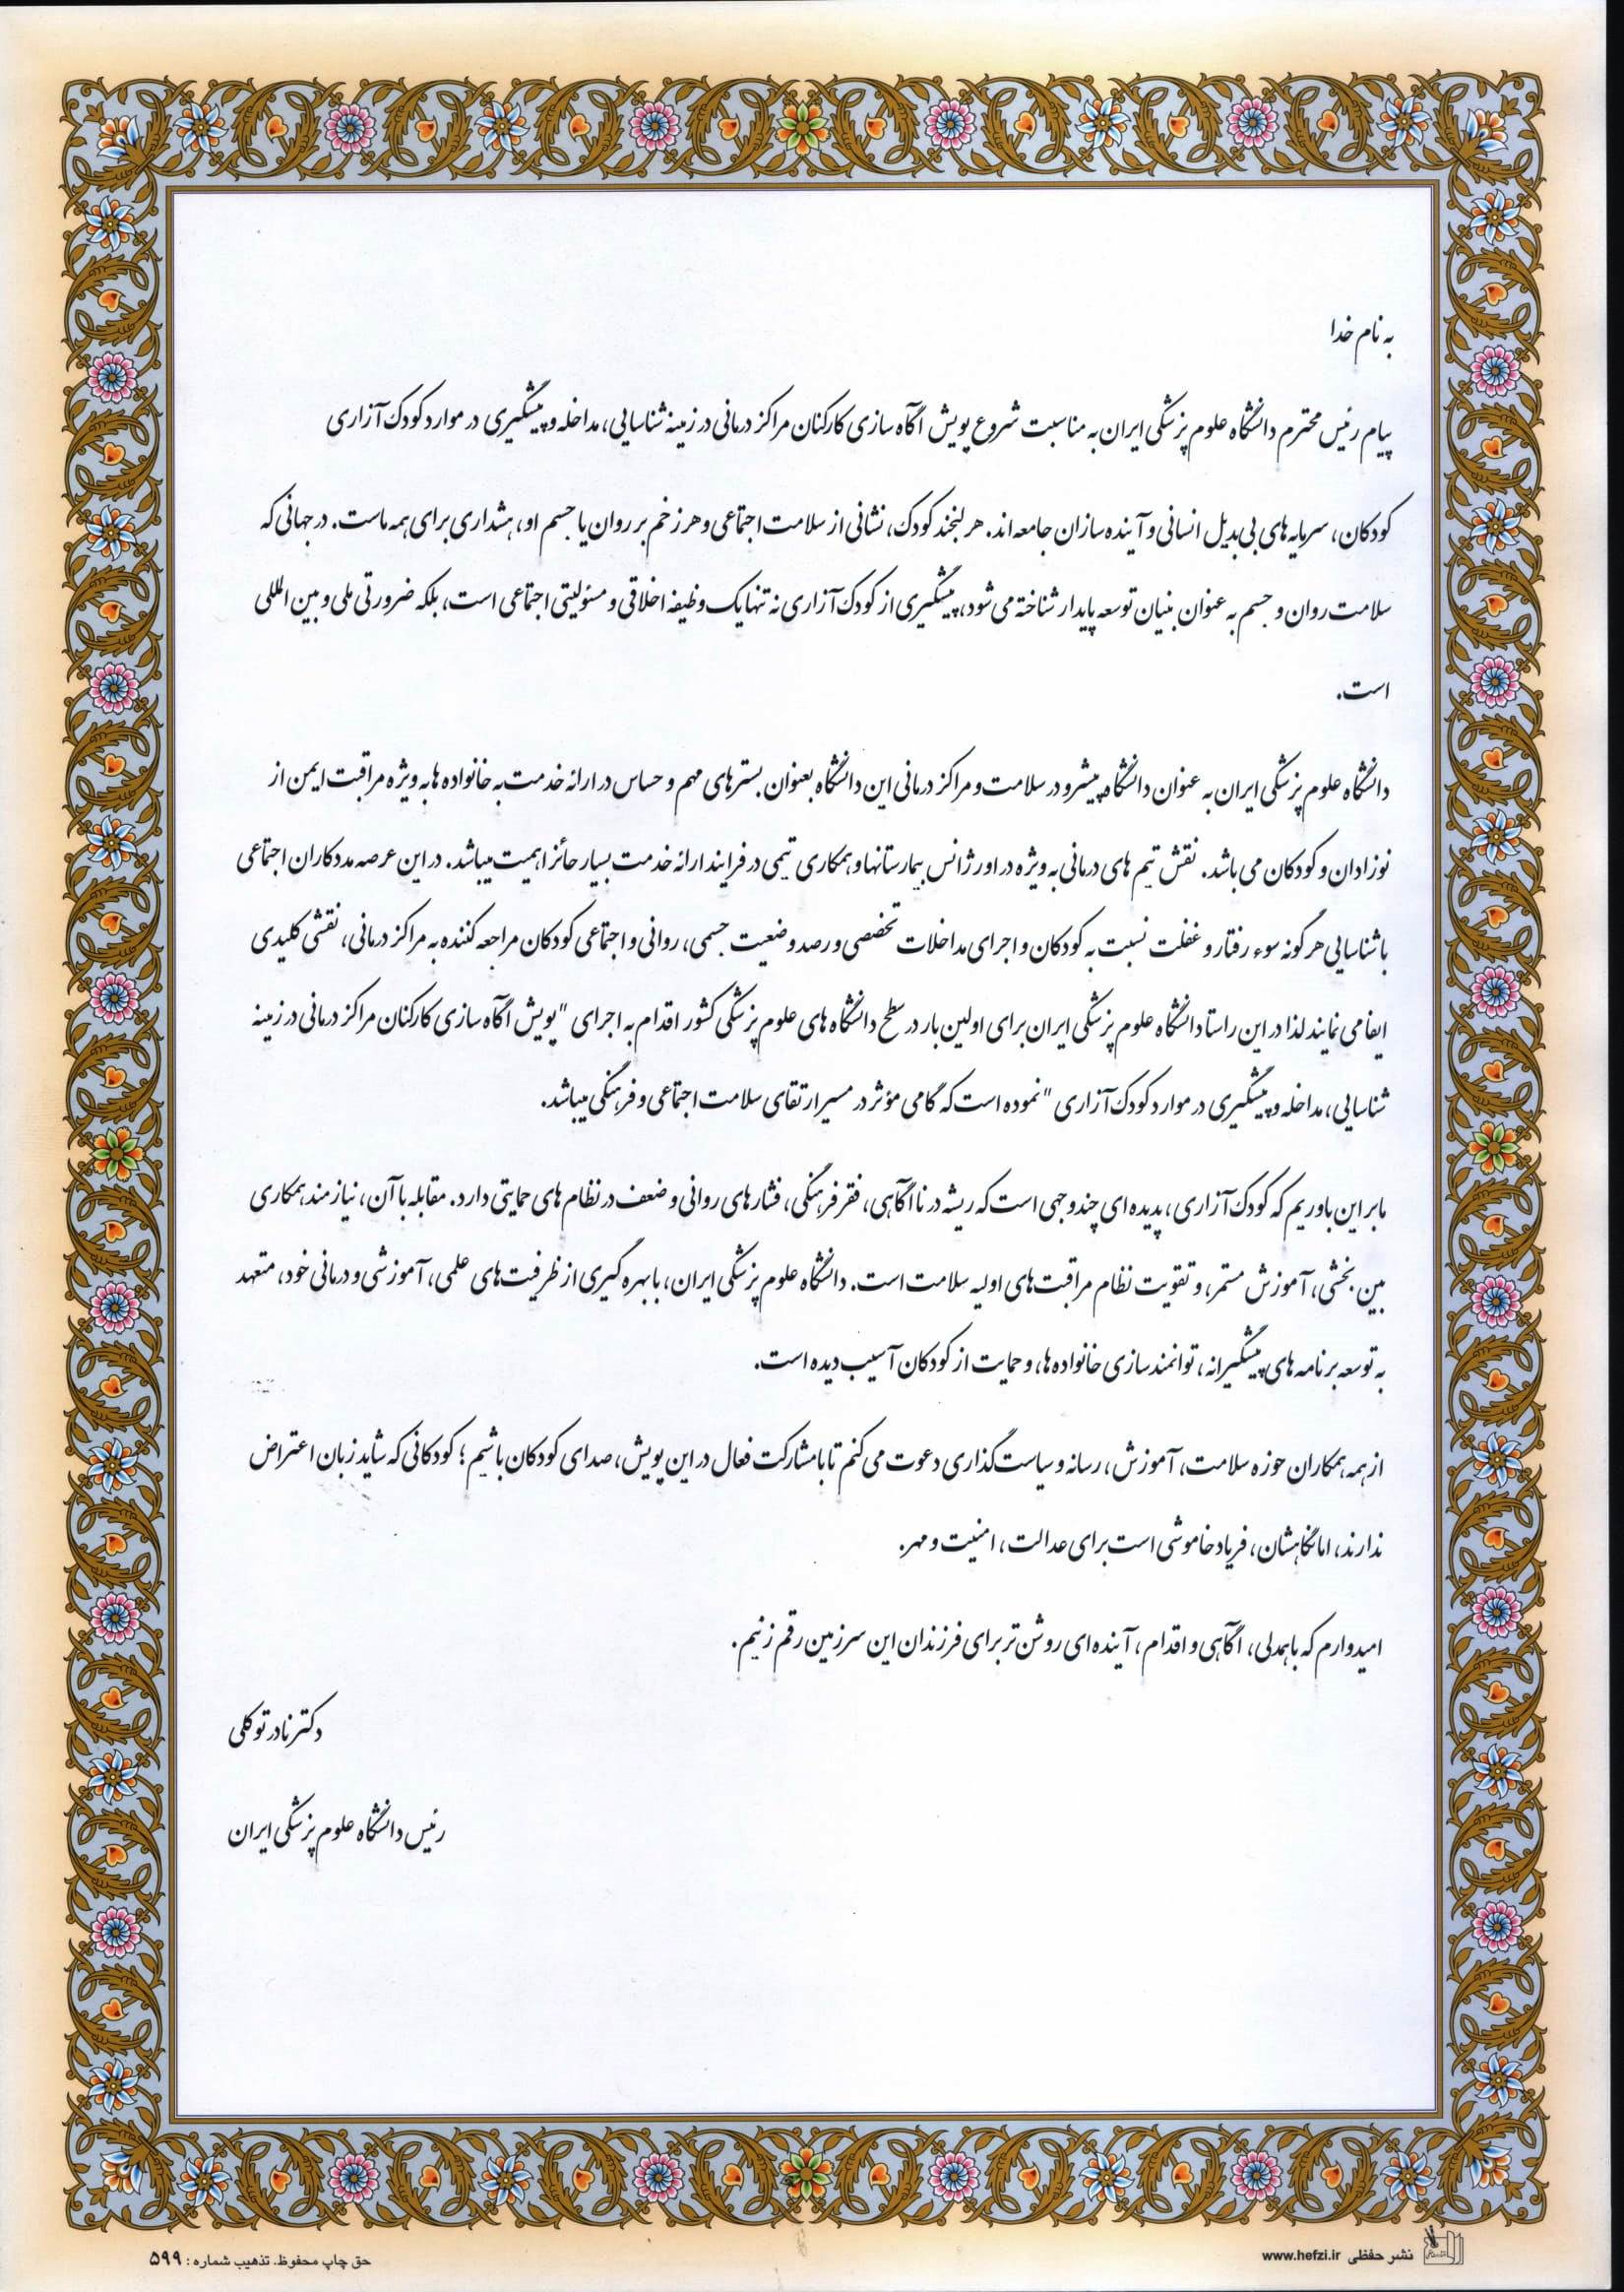 به نام خدا
پیام رئیس محترم دانشگاه علوم پزشکی ایران به مناسبت شروع پویش آگاه سازی کارکنان مراکز درمانی در زمینه شناسایی، مداخله و پیشگیری در موارد کودک آزاری
کودکان، سرمایه‌های بی‌بدیل انسانی و آینده‌سازان جامعه‌اند. هر لبخند کودک، نشانی از سلامت اجتماعی و هر زخم بر روان یا جسم او، هشداری برای همه ماست. در جهانی که
سلامت روان و جسم به عنوان بنیان توسعه پایدار شناخته می‌شود، پیشگیری از کودک آزاری نه تنها یک وظیفه اخلاقی و مسئولیتی اجتماعی است، بلکه ضرورتی ملی و بین المللی
است.
دانشگاه علوم پزشکی ایران به عنوان دانشگاه پیشرو در سلامت و مراکز درمانی این دانشگاه بعنوان بسترهای مهم و حساس در ارائه خدمت به خانواده ها به ویژه مراقبت ایمن از
نوزادان و کودکان می باشد. نقش تیم های درمانی به ویژه در اورژانس بیمارستانها و همکاری تیمی در فرایند ارائه خدمت بسیار حائز اهمیت میباشد. در این عرصه مددکاران اجتماعی
با شناسایی هر گونه سوء رفتار و غفلت نسبت به کودکان و اجرای مداخلات تخصصی و رصد وضعیت جسمی، روانی و اجتماعی کودکان مراجعه کننده به مراکز درمانی، نقشی کلیدی
ایفا می نمایند لذا در این راستا دانشگاه علوم پزشکی ایران برای اولین بار در سطح دانشگاه های علوم پزشکی کشور اقدام به اجرای "پویش آگاه سازی کارکنان مراکز درمانی در زمینه
شناسایی، مداخله و پیشگیری در موارد کودک آزاری " نموده است که گامی مؤثر در مسیر ارتقای سلامت اجتماعی و فرهنگی میباشد.
ما بر این باوریم که کودک آزاری، پدیده ای چندوجهی است که ریشه در ناآگاهی، فقر فرهنگی، فشارهای روانی و ضعف در نظام های حمایتی دارد. مقابله با آن، نیازمند همکاری
بین بخشی، آموزش مستمر، و تقویت نظام مراقبت‌های اولیه سلامت است. دانشگاه علوم پزشکی ایران، با بهره گیری از ظرفیت‌های علمی، آموزشی و درمانی خود، متعهد
به توسعه برنامه های پیشگیرانه، توانمندسازی خانواده ها، و حمایت از کودکان آسیب دیده است.
از همه همکاران حوزه سلامت، آموزش، رسانه و سیاست گذاری دعوت می کنم تا با مشارکت فعال در این پویش، صدای کودکان باشیم؛ کودکانی که شاید زبان اعتراض
ندارند، اما نگاهشان، فریاد خاموشی است برای عدالت، امنیت و مهر.
امیدوارم که با همدلی، آگاهی و اقدام، آینده ای روشن تر برای فرزندان این سرزمین رقم زنیم.
دکتر نادر توکلی
رئیس دانشگاه علوم پزشکی ایران
نشر حفظی www.hefzi.ir
حق چاپ محفوظ. تذهیب شماره: ۵۹۹